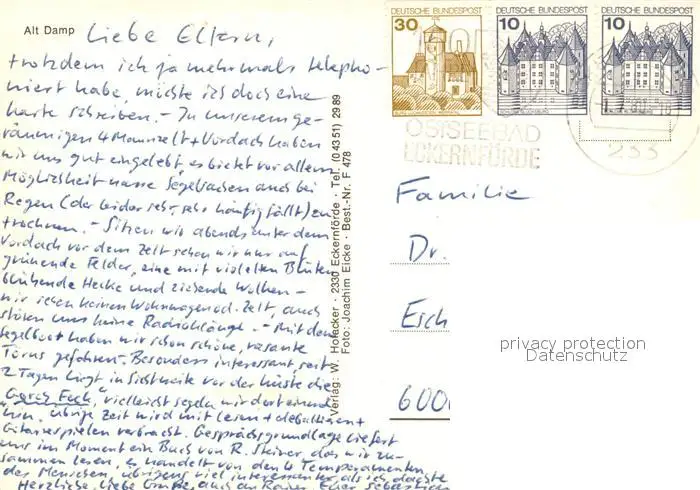 Alt Damp
Liebe Eltern,
trotzdem ich ja mehrmals telepho-
niert habe, möchte ich doch eine
Karte schreiben. - In unserem ge-
räumigen 4 Mannzelt + Vordach haben
wir uns gut eingelebt es bietet vor allem
Möglichkeit nasse Segelsachen auch bei
Regen (der leider sehr, sehr häufig fällt) zu
trocknen. - Sitzen wir abends unter dem
Vordach vor dem Zelt sehen wir nur auf
grünende Felder, eine mit violetten Blüten
blühende Hecke und ziehende Wolken -
wir sehen keinen Wohnwagen od. Zelt, auch
stören uns keine Radioklänge. - Mit dem
Segelboot haben wir schon schöne, rasante
Törns gefahren. Besonders interessant, seit
2 Tagen liegt in Sichtweite vor der Küste die
"Gorch Fock", vielleicht segeln wir dort einmal
hin, übrige Zeit wird mit Lesen + debattieren +
Gitarrespielen verbracht. Gesprächsgrundlage liefert
uns im Moment ein Buch von R. Steiner, das wir zu-
sammen lesen, es handelt von den 4 Temperamenten
des Menschen, übrigens viel interessanter als ich dachte
Herzliche, liebe Grüße, auch an Rainer, Euer Sebastian
Verlag: W. Hofacker · 2330 Eckernförde · Tel. (0 43 51) 29 89
Foto: Joachim Eicke · Best.-Nr. F 478
DEUTSCHE BUNDESPOST
30
DEUTSCHE BUNDESPOST
10
DEUTSCHE BUNDESPOST
10
OSTSEEBAD
ECKERNFÖRDE
233
Familie
Dr.
Esch
600
privacy protection
Datenschutz